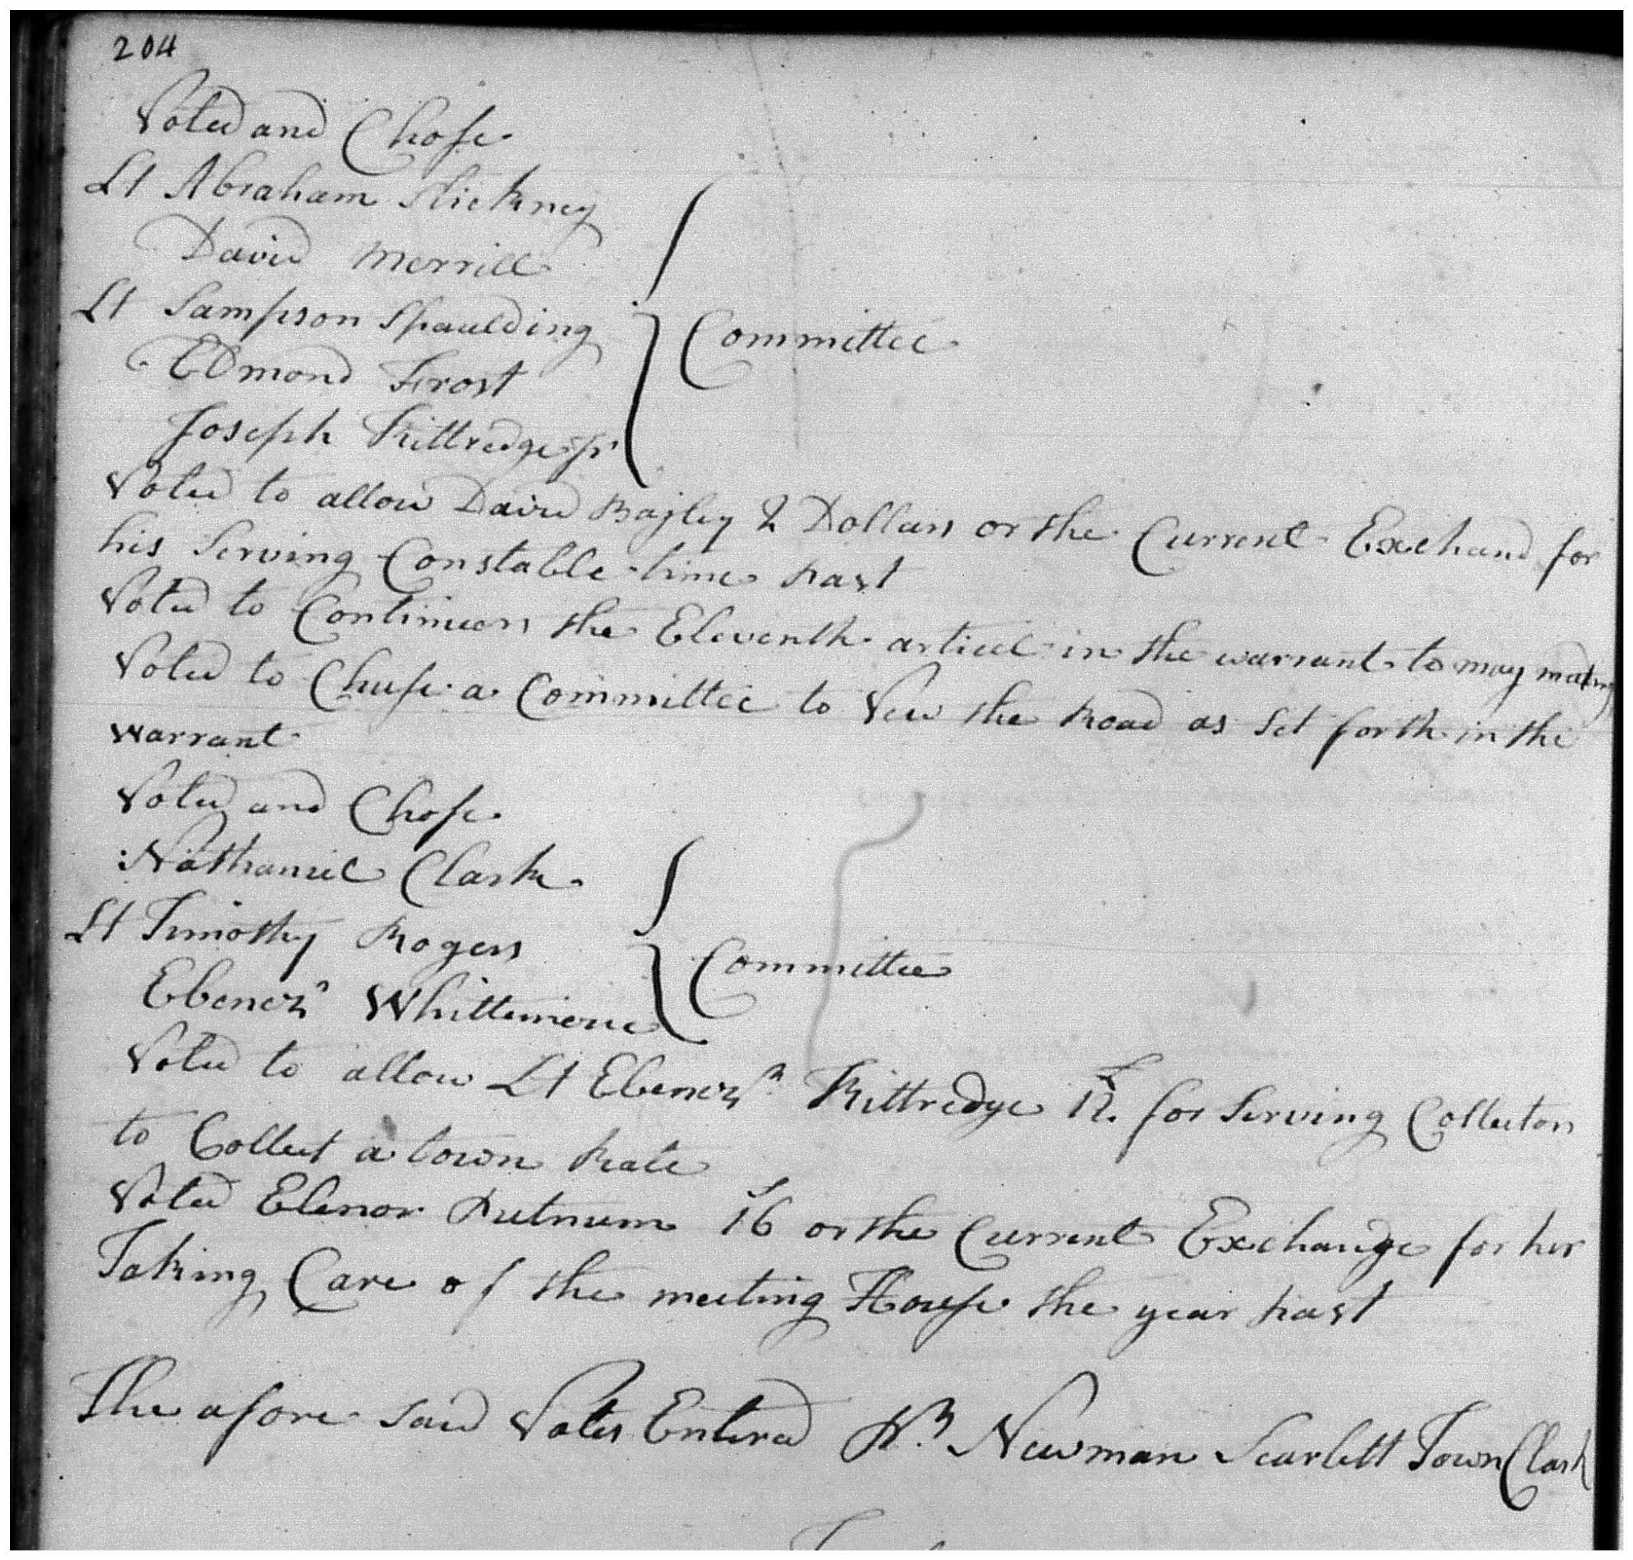 204
Voted and Chose
Lt Abraham Stickney
David Merrill
Lt Sampson Spaulding
Edmond Frost
Joseph Kittredge Jr
Committee
Voted to allow David Bayley 2 Dollars or the Current Exchand for
his Serving Constable time past
Voted to Continuers the Eleventh articel in the warrant to may
Voted to Chuse a Committee to Vew the Road as Set forth in the
warrant
Voted and Chose
Nathaniel Clark
Lt Timothy Rogers
Ebenezr Whittemore
Committee
Voted to allow Lt Ebenezr Kittredge 12 for Serving Collector
to Collect a town Rate
Voted Elenor Putnum 16 or the Current Exchange for her
Taking Care of the meeting House the year past
The afore said Votes Entered Pr Newman Scarlett Town Clark